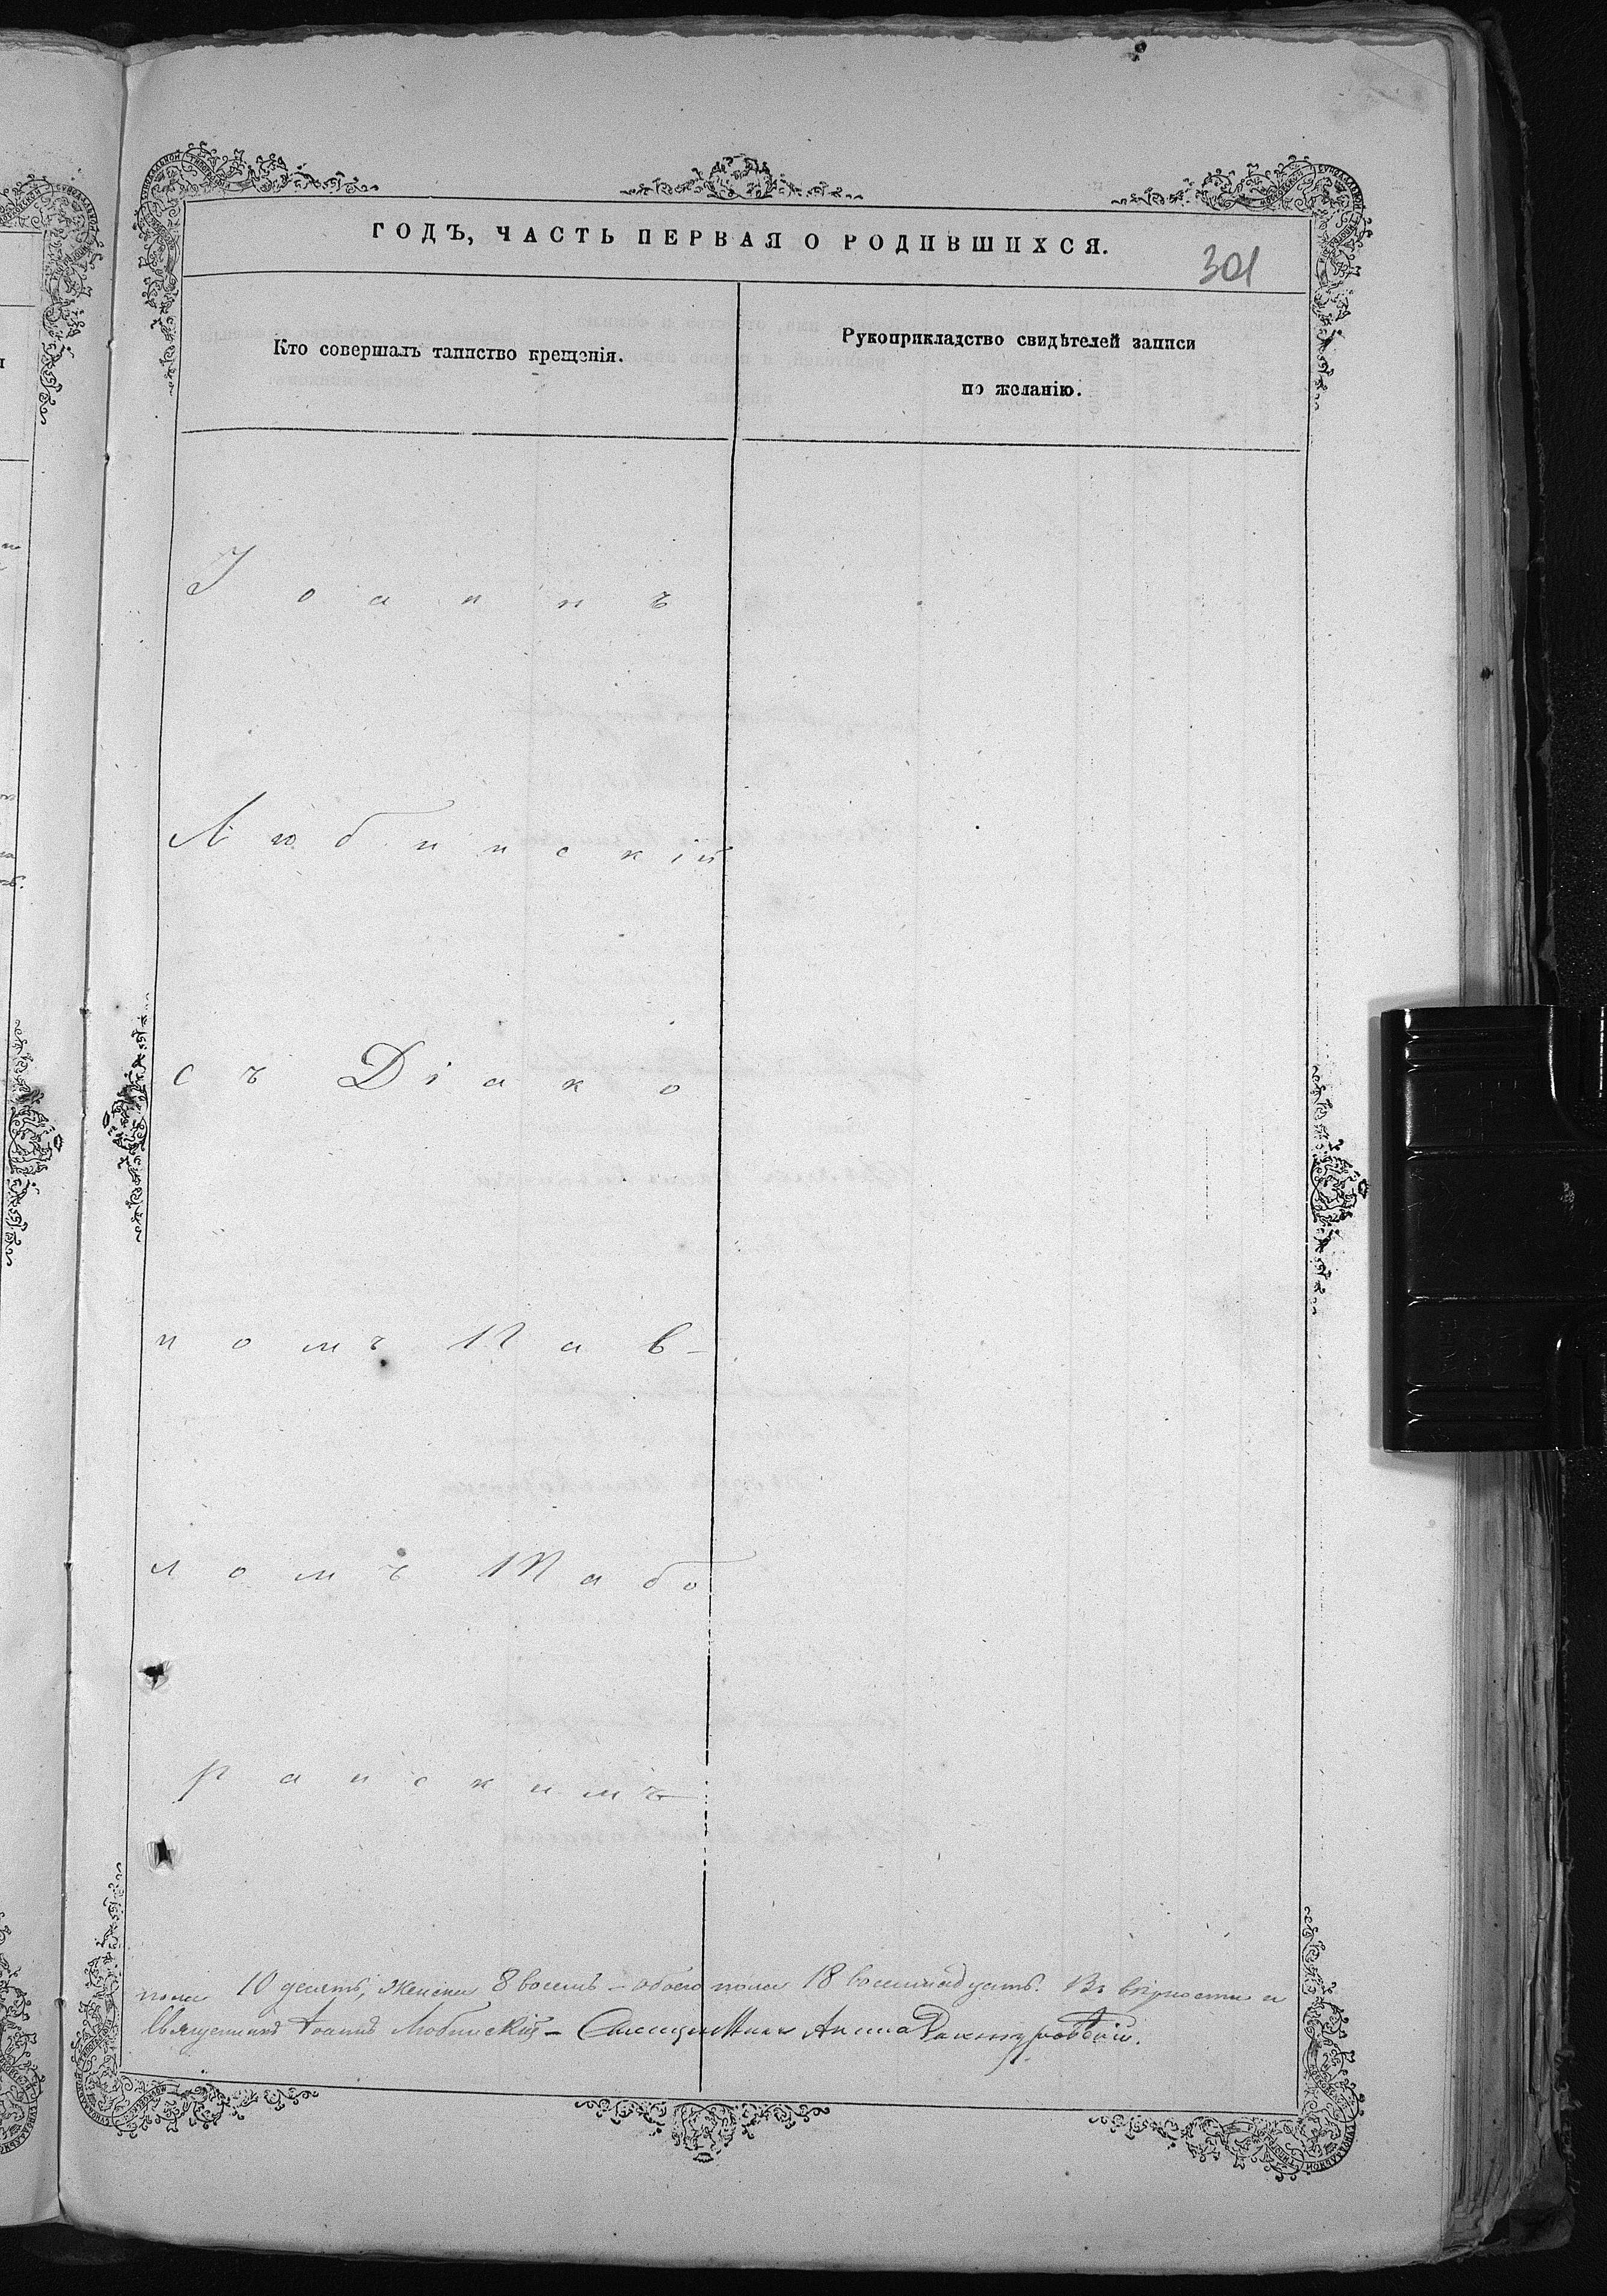 ГОДЪ, ЧАСТЬ ПЕРВАЯ О РОДИВШИХСЯ.
301
Кто совершалъ таинство крещенія.
Рукоприкладство свидѣтелей записи
по желанію.
Іоаннъ
Любинскій
съ Діако
номъ Пав-
ломъ Табо
ранскимъ
пола 10 десять, женска 8 восемь – обоего пола 18 восемнадцать. Въ вѣрности и
Священникъ Іоаннъ Любинскій –